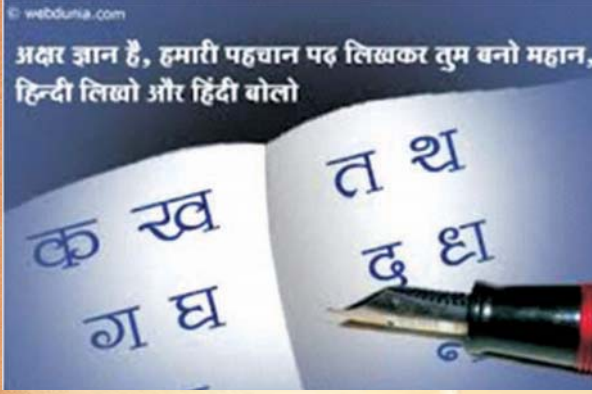 © webdunia.com
अक्षर ज्ञान है, हमारी पहचान पढ़ लिखकर तुम बनो महान,
हिन्दी लिखो और हिंदी बोलो
क ख
ग घ
त थ
द ध